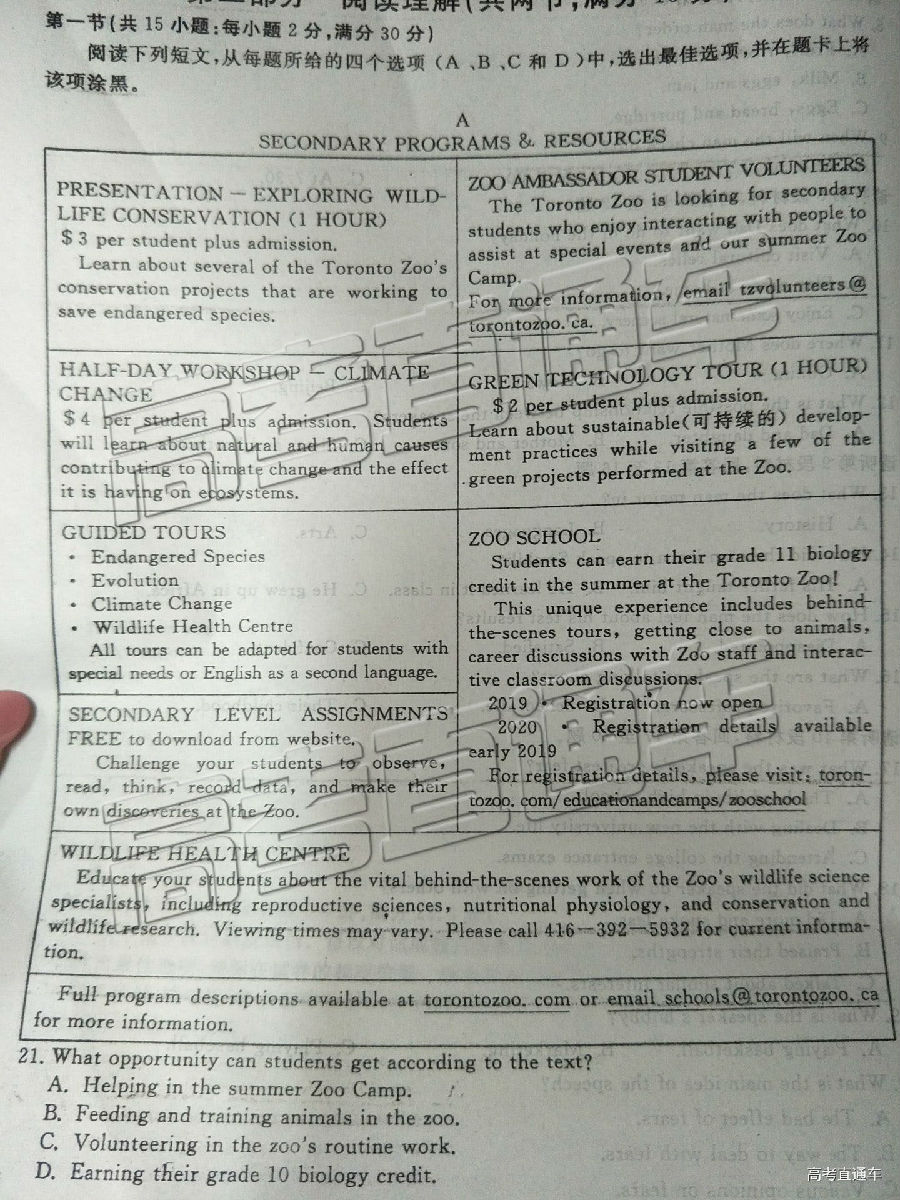 第一节(共 15 小题;每小题 2 分,满分 30 分)
阅读下列短文,从每题所给的四个选项(A、B、C 和 D)中,选出最佳选项,并在题卡上将
该项涂黑。
A
SECONDARY PROGRAMS & RESOURCES
PRESENTATION — EXPLORING WILD-
LIFE CONSERVATION (1 HOUR)
$ 3 per student plus admission.
Learn about several of the Toronto Zoo's
conservation projects that are working to
save endangered species.
ZOO AMBASSADOR STUDENT VOLUNTEERS
The Toronto Zoo is looking for secondary
students who enjoy interacting with people to
assist at special events and our summer Zoo
Camp.
For more information, email tzvolunteers@
torontozoo. ca.
HALF-DAY WORKSHOP — CLIMATE
CHANGE
$ 4 per student plus admission. Students
will learn about natural and human causes
contributing to climate change and the effect
it is having on ecosystems.
GREEN TECHNOLOGY TOUR (1 HOUR)
$ 2 per student plus admission.
Learn about sustainable(可持续的) develop-
ment practices while visiting a few of the
green projects performed at the Zoo.
GUIDED TOURS
• Endangered Species
• Evolution
• Climate Change
• Wildlife Health Centre
All tours can be adapted for students with
special needs or English as a second language.
ZOO SCHOOL
Students can earn their grade 11 biology
credit in the summer at the Toronto Zoo!
This unique experience includes behind-
the-scenes tours, getting close to animals,
career discussions with Zoo staff and interac-
tive classroom discussions.
2019 • Registration now open
2020 • Registration details available
early 2019
For registration details, please visit: toron-
tozoo. com/educationandcamps/zooschool
SECONDARY LEVEL ASSIGNMENTS
FREE to download from website.
Challenge your students to observe,
read, think, record data, and make their
own discoveries at the Zoo.
WILDLIFE HEALTH CENTRE
Educate your students about the vital behind-the-scenes work of the Zoo's wildlife science
specialists, including reproductive sciences, nutritional physiology, and conservation and
wildlife research. Viewing times may vary. Please call 416—392—5932 for current informa-
tion.
Full program descriptions available at torontozoo. com or email schools@torontozoo. ca
for more information.
21. What opportunity can students get according to the text?
A. Helping in the summer Zoo Camp.
B. Feeding and training animals in the zoo.
C. Volunteering in the zoo's routine work.
D. Earning their grade 10 biology credit.
高考直通车
高考直通车
高考直通车